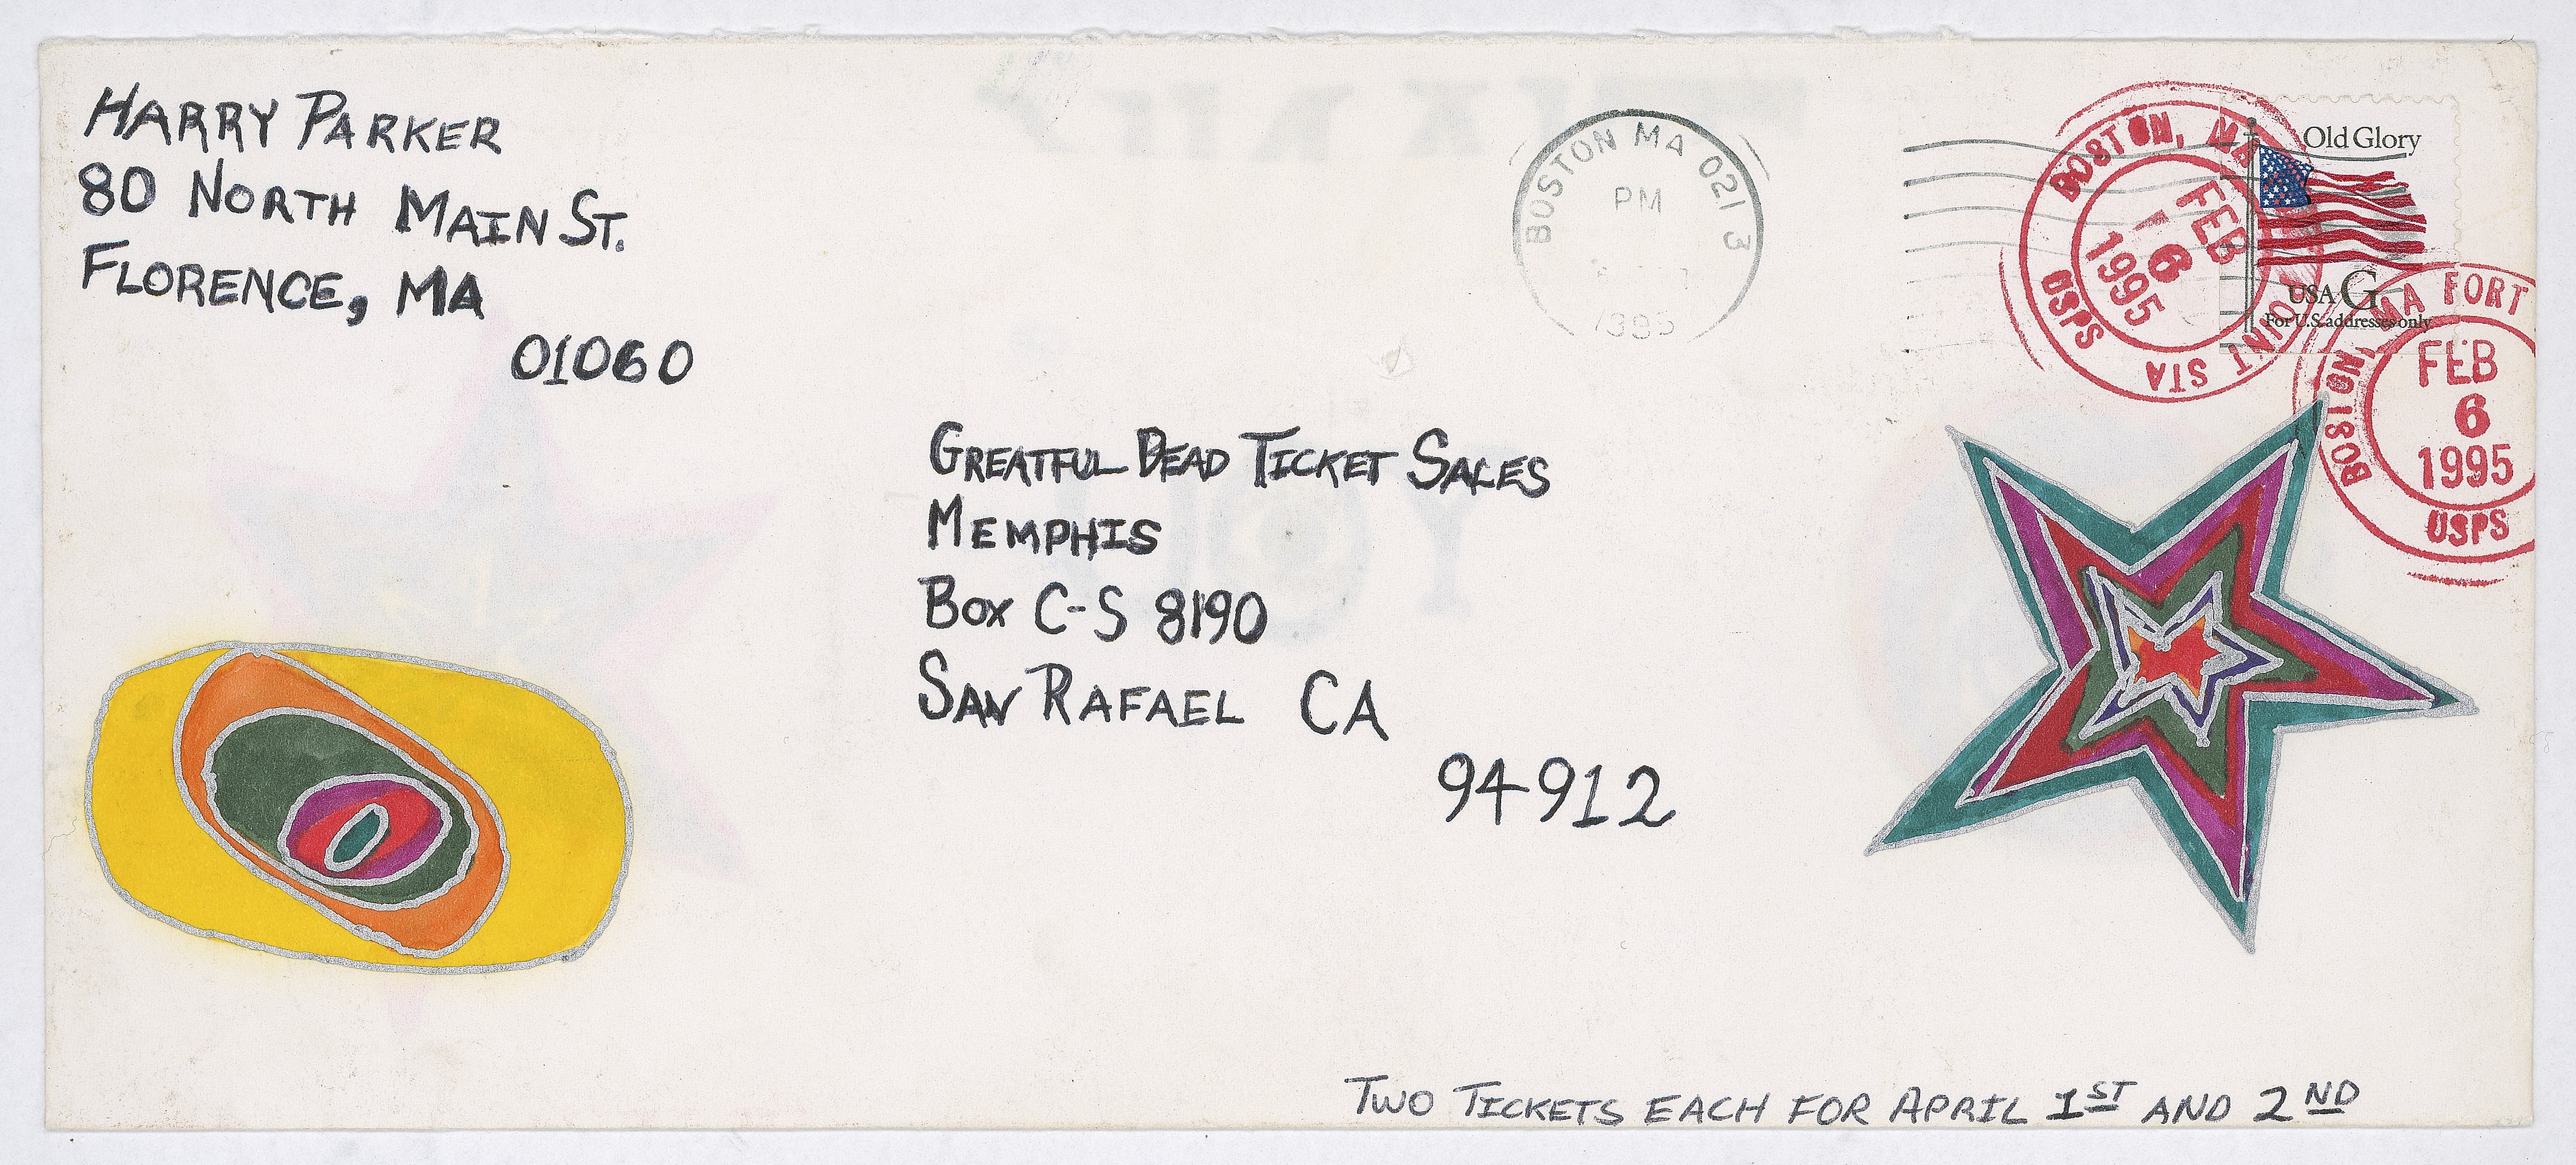 HARRY PARKER
80 NORTH MAIN ST.
FLORENCE, MA
01060
BOSTON MA 021 3
PM
1995
BOSTON, MA
FEB
6
1995
USPS
POINT STA
Old Glory
USA G
For U.S. addresses only
BOSTON MA FORT
FEB
6
1995
USPS
GREATFUL DEAD TICKET SALES
MEMPHIS
BOX C-S 8190
SAN RAFAEL CA
94912
TWO TICKETS EACH FOR APRIL 1ST AND 2ND